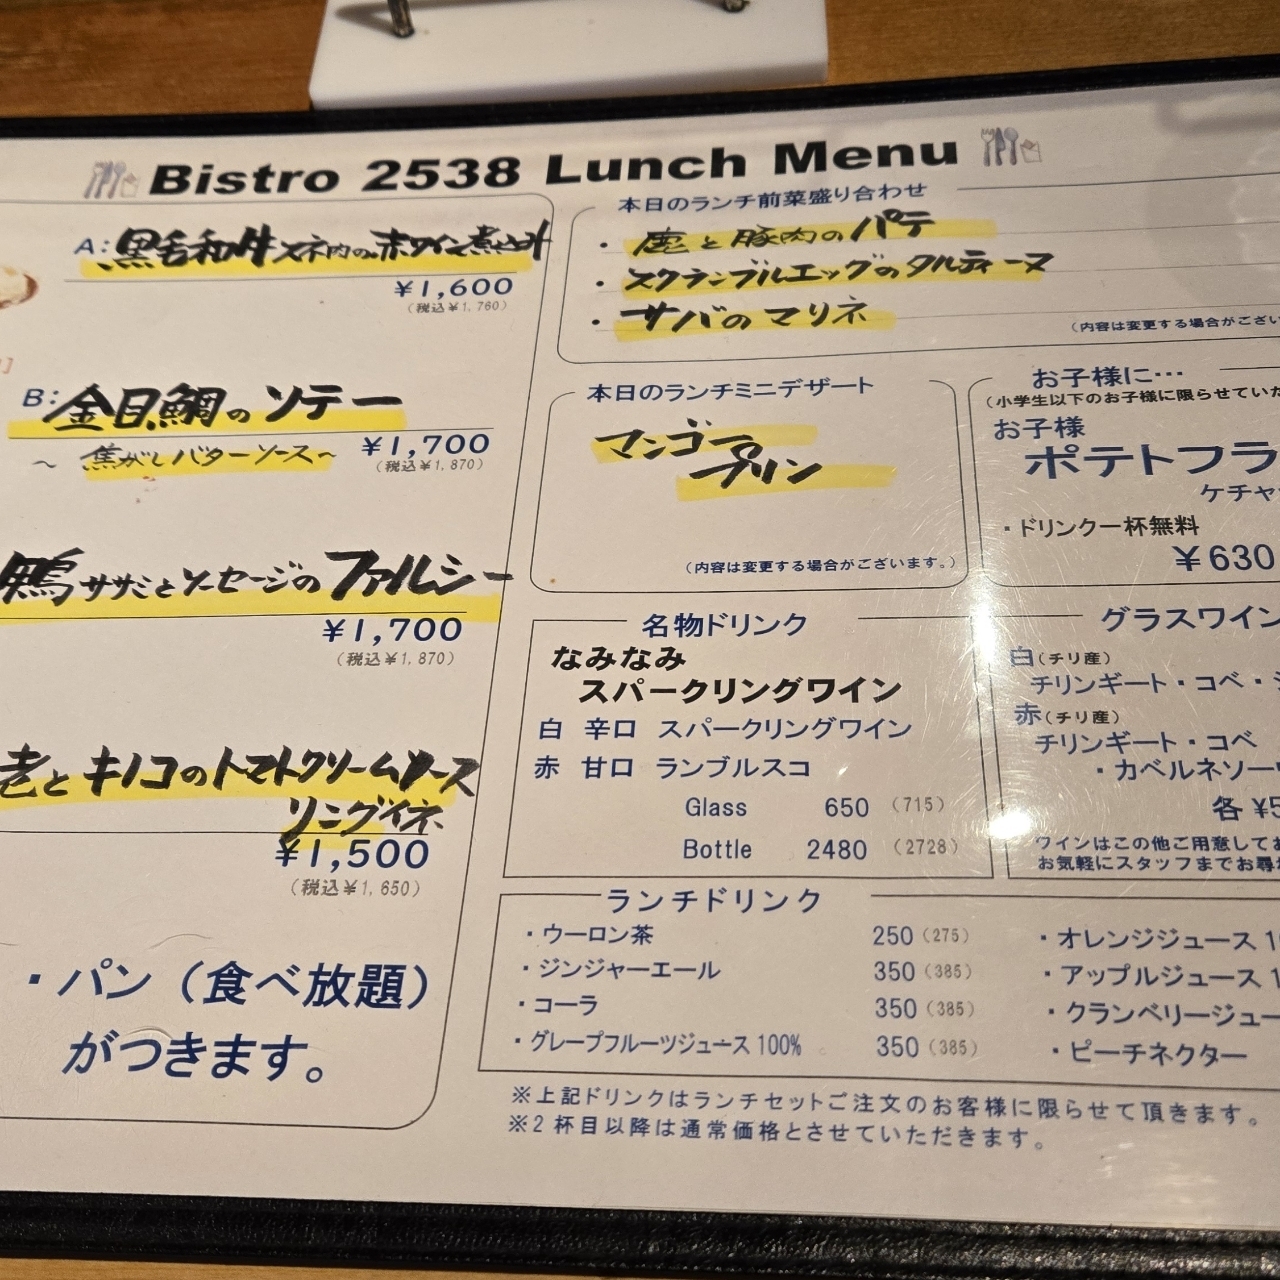 Bistro 2538 Lunch Menu
A:黒毛和牛スネ肉の赤ワイン煮込み
¥1,600
(税込¥1,760)
B:金目鯛のソテー
～焦がしバターソース～
¥1,700
(税込¥1,870)
鴨ササミとソーセージのファルシー
¥1,700
(税込¥1,870)
老とキノコのトマトクリームソース
リングイネ
¥1,500
(税込¥1,650)
・パン（食べ放題）
がつきます。
本日のランチ前菜盛り合わせ
・鹿と豚肉のパテ
・スクランブルエッグのタルティーヌ
・サバのマリネ
(内容は変更する場合がござい
本日のランチミニデザート
マンゴー
プリン
(内容は変更する場合がございます。)
お子様に…
(小学生以下のお子様に限らせていた
お子様
ポテトフラ
ケチャ
・ドリンク一杯無料
¥630
名物ドリンク
なみなみ
スパークリングワイン
白 辛口 スパークリングワイン
赤 甘口 ランブルスコ
Glass 650 (715)
Bottle 2480 (2728)
グラスワイン
白(チリ産)
チリンギート・コベ・
赤(チリ産)
チリンギート・コベ
・カベルネソー
各 ¥5
ワインはこの他ご用意してお
お気軽にスタッフまでお尋
ランチドリンク
・ウーロン茶 250(275)
・ジンジャーエール 350(385)
・コーラ 350(385)
・グレープフルーツジュース100% 350(385)
・オレンジジュース 10
・アップルジュース 1
・クランベリージュー
・ピーチネクター
※上記ドリンクはランチセットご注文のお客様に限らせて頂きます。
※2杯目以降は通常価格とさせていただきます。